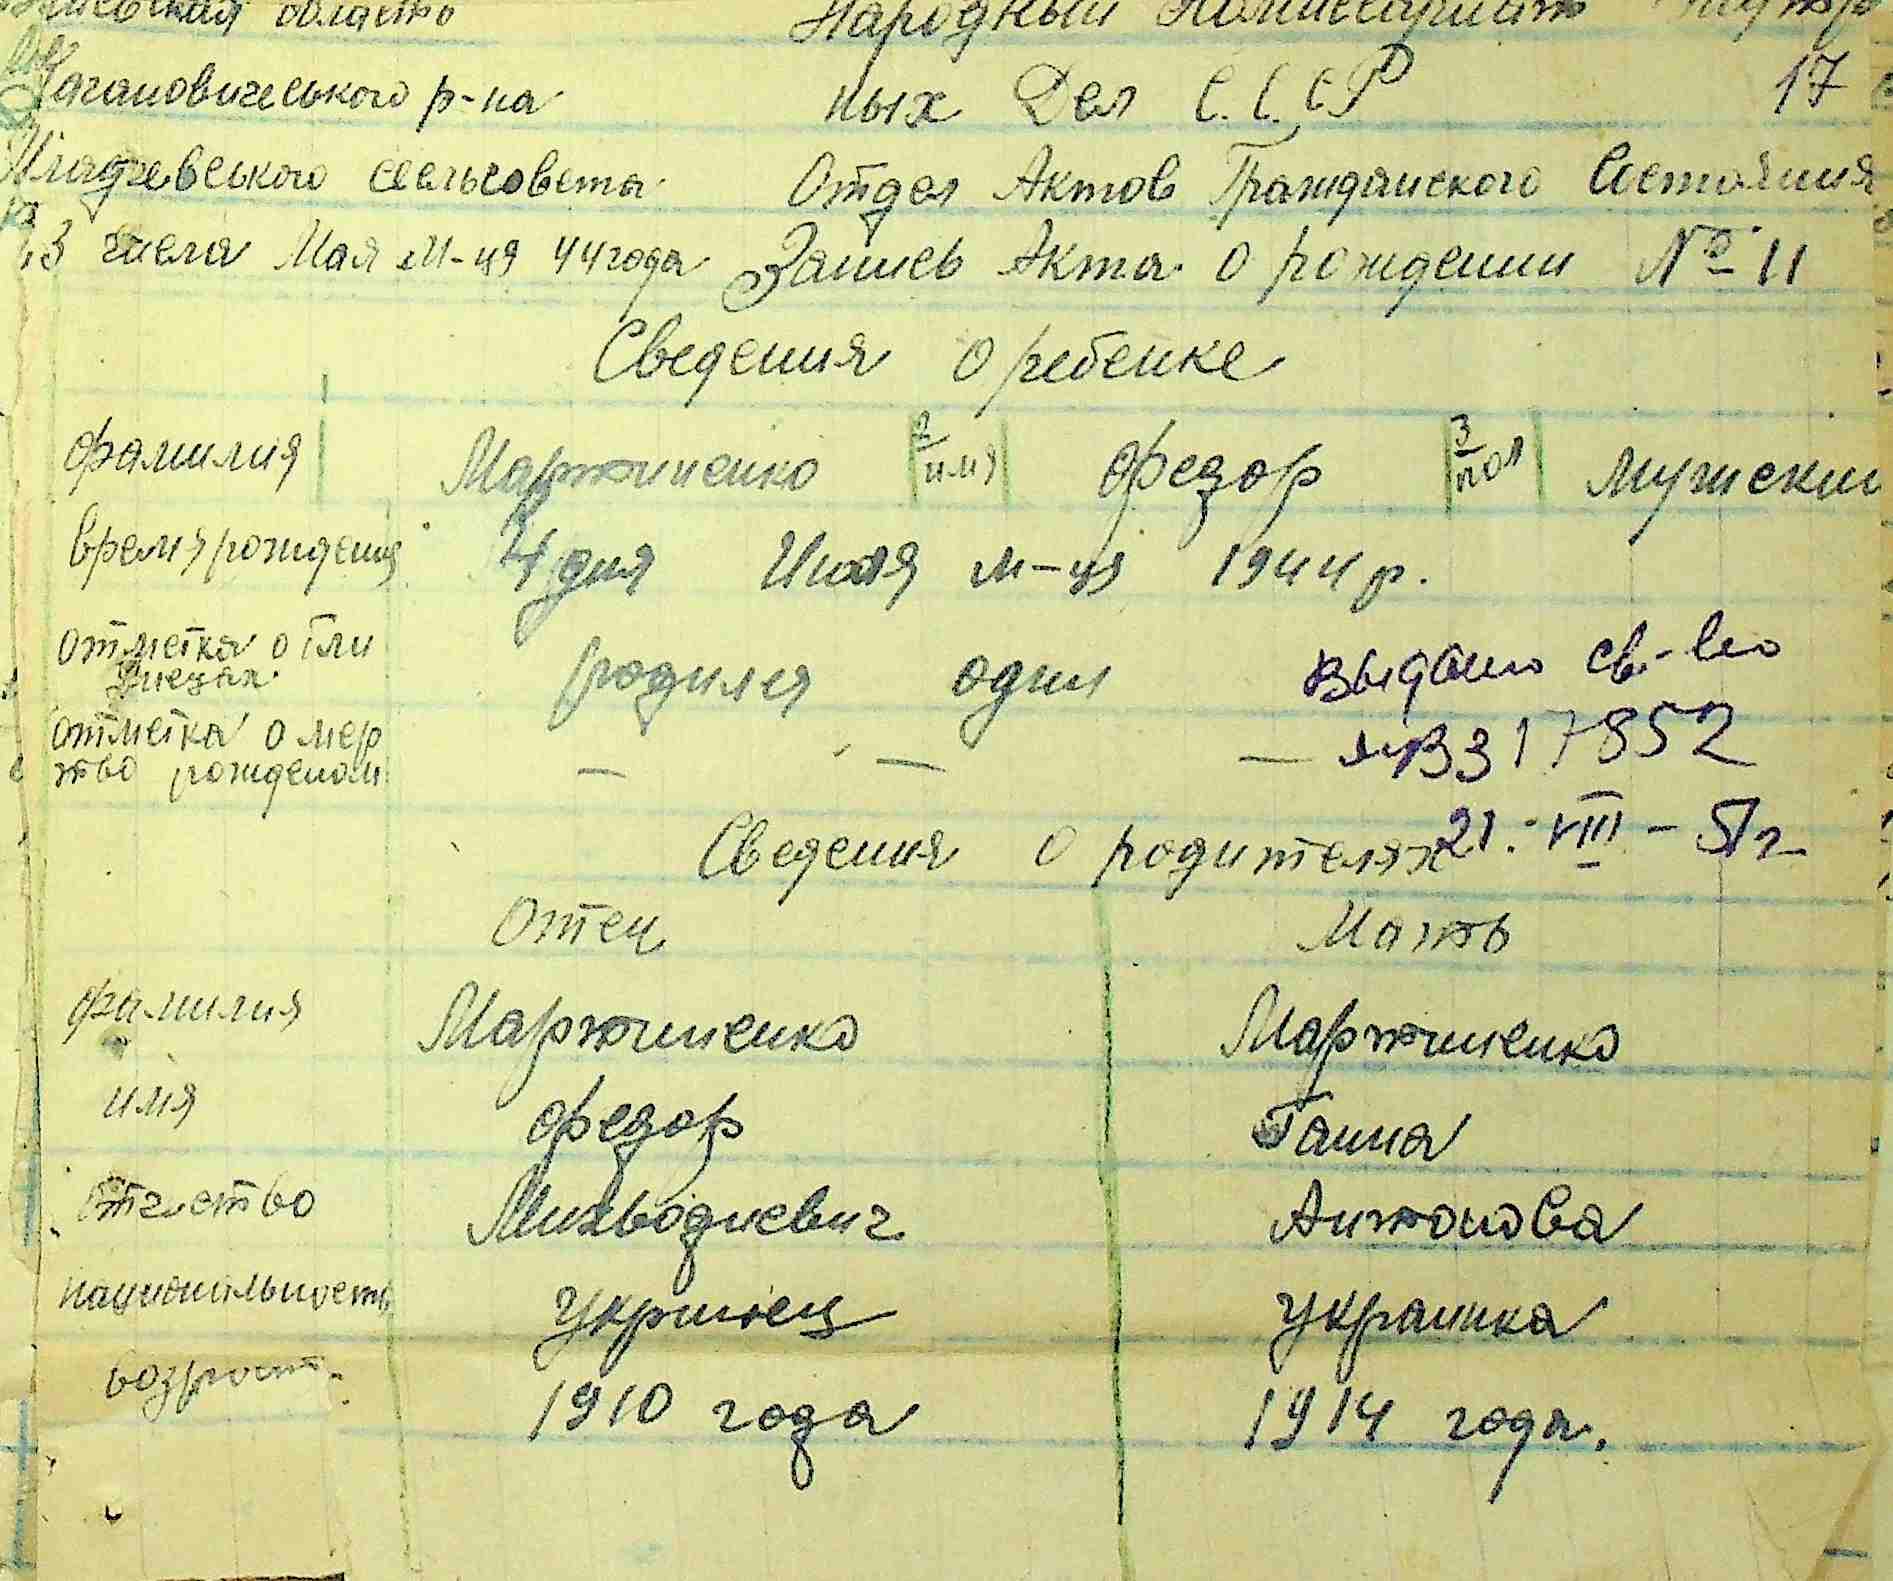 область Народный Комиссариат
Кагановичеського р-на ных Дел С.С.С.Р 17
сельсовета Отдел Актов Гражданского Состояния
числа Мая м-ця 44 года Запись Акта о рождении № 11
Сведения о ребенке
фамилия Мартиненко 2 имя Федор 3 пол мужский
время рождения 4 дня м-ця 1944 р.
отметка о бли
родился один выдано св-во
отметка о мер
тво рожденом — — — 317852
Сведения о родителях 21.-VIII-51г
Отец Мать
фамилия Мартиненко Мартиненко
имя Федор Ганна
отчество Антонова
национальность украинка
возраст. 1910 года 1914 года.